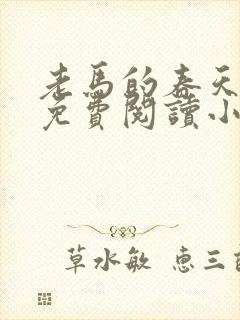 老馬的春天
免費閱讀小
草水敏 惠三